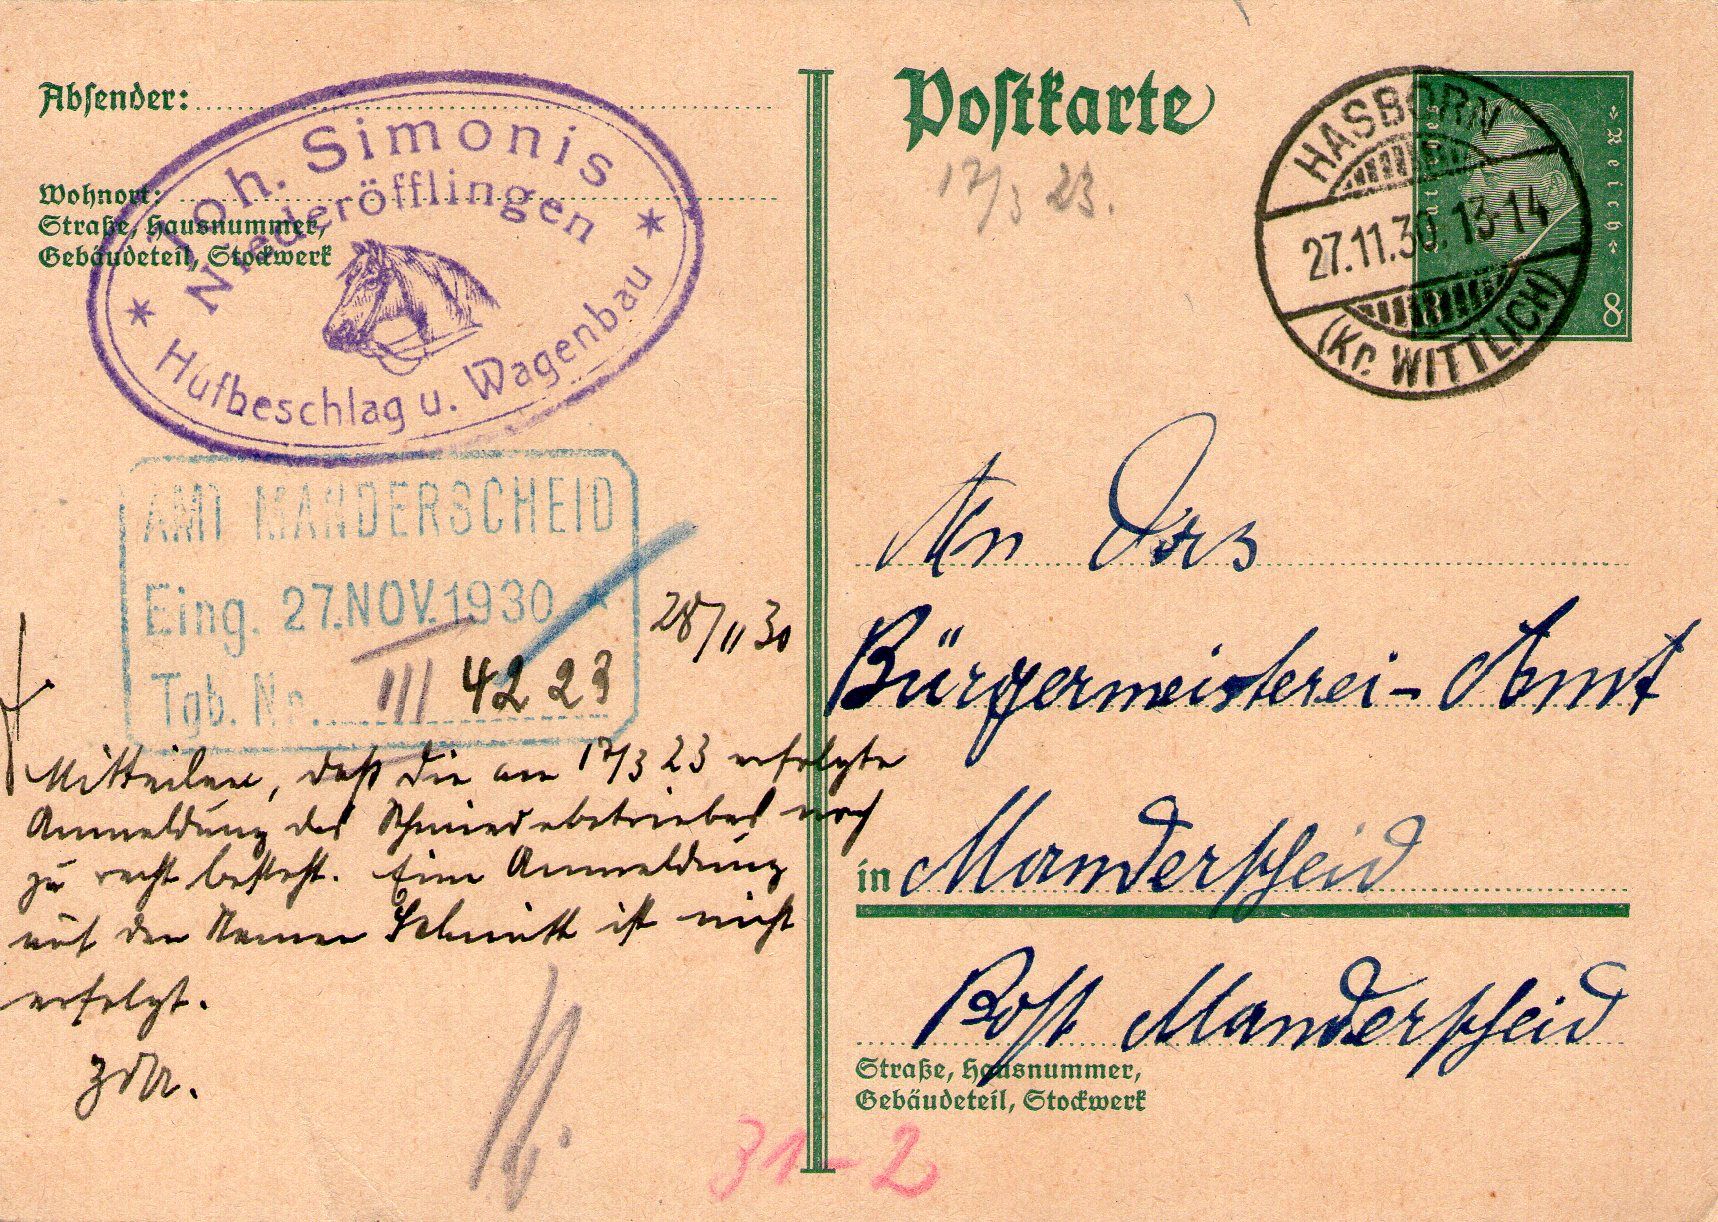 Absender:
Wohnort:
Straße, Hausnummer,
Gebäudeteil, Stockwerk
Joh. Simonis
Niederöfflingen
* *
Hufbeschlag u. Wagenbau
AMT MANDERSCHEID
Eing. 27.NOV.1930 *
Tgb. Nr. III 4223
28/11 30
Mitteilen, daß die am 17/3 23 erfolgte
Anmeldung des Schmiedebetriebes noch
zu recht besteht. Eine Anmeldung
auf den Namen Schmitt ist nicht
erfolgt.
ZdA.
31-2
Postkarte
17/3 23.
HASBORN
27.11.30. 13-14
(Kr. WITTLICH)
Reich
8
An Das
Bürgermeisterei-Amt
in Manderscheid
Post Manderscheid
Straße, Hausnummer,
Gebäudeteil, Stockwerk